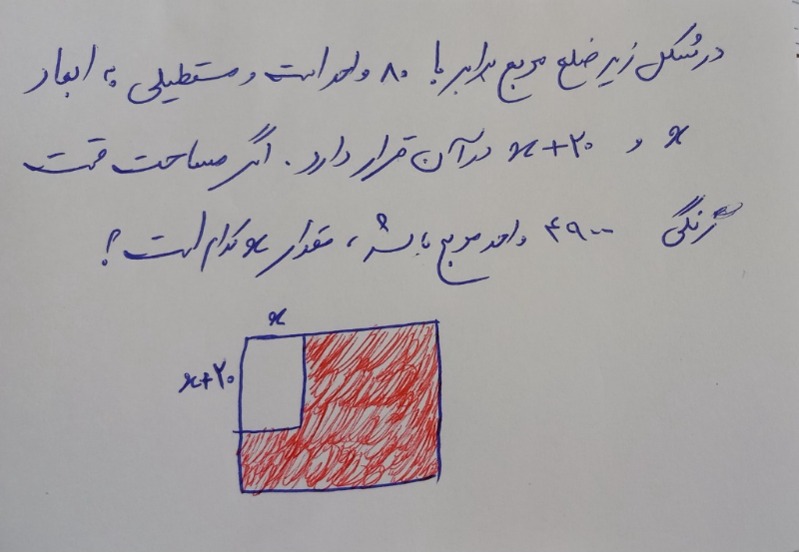 در شکل زیر ضلع مربع برابر با ۸۰ واحد است و مستطیلی به ابعاد
x و x+۲۰ در آن قرار دارد. اگر مساحت قسمت
رنگی ۴۹۰۰ واحد مربع باشد، مقدار x کدام است؟
x
x+۲۰